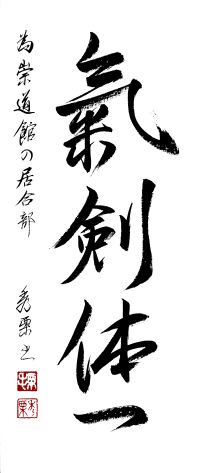 氣剣体一
為崇道館の居合部
秀栗之